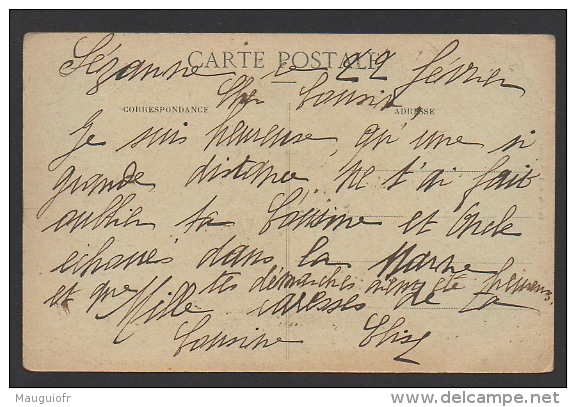 CARTE POSTALE
Sézanne le 22 février
CORRESPONDANCE
ADRESSE
Cher Cousin,
Je suis heureuse, qu'une si
grande distance ne t'ai fait
oublier ta Cousine et Oncle
échoués dans la Marne
et que tes démarches aient été
Mille caresses de ta
Cousine
Mauguiofr
www.delcampe.net